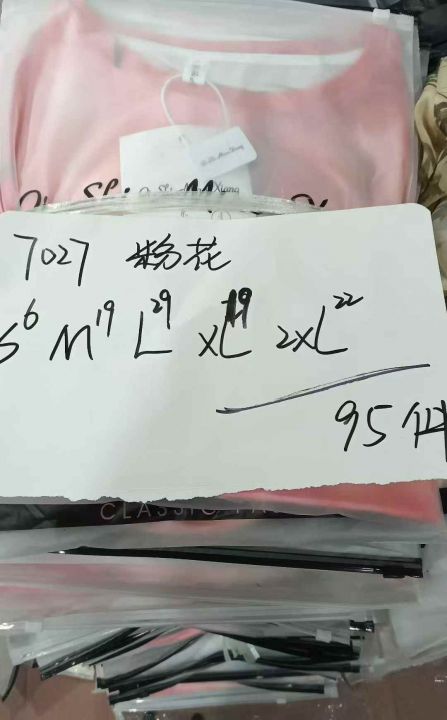 Xiang
7027 粉花
S⁶ M¹⁹ L²⁹ XL¹⁹ 2XL²²
95件
CLASSIC